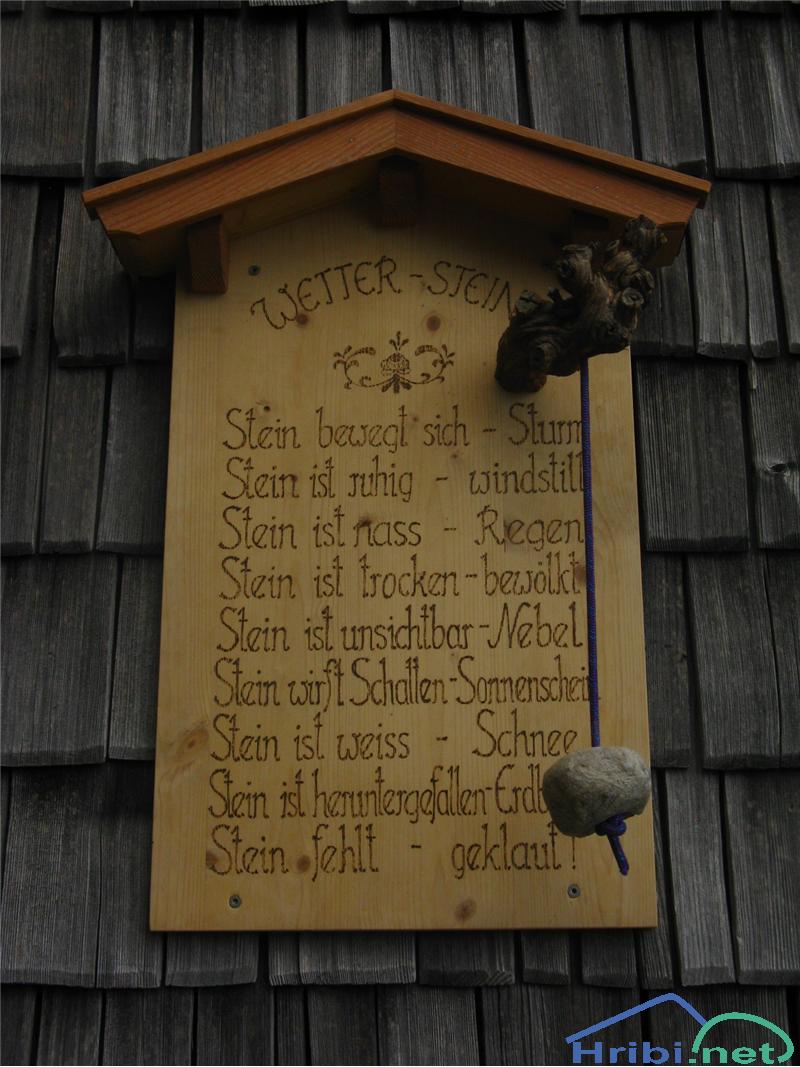 WETTER-STEIN
Stein bewegt sich - Sturm
Stein ist ruhig - windstill
Stein ist nass - Regen
Stein ist trocken - bewölkt
Stein ist unsichtbar - Nebel
Stein wirft Schatten - Sonnenschein
Stein ist weiss - Schnee
Stein ist heruntergefallen -
Stein fehlt - geklaut!
Hribi.net